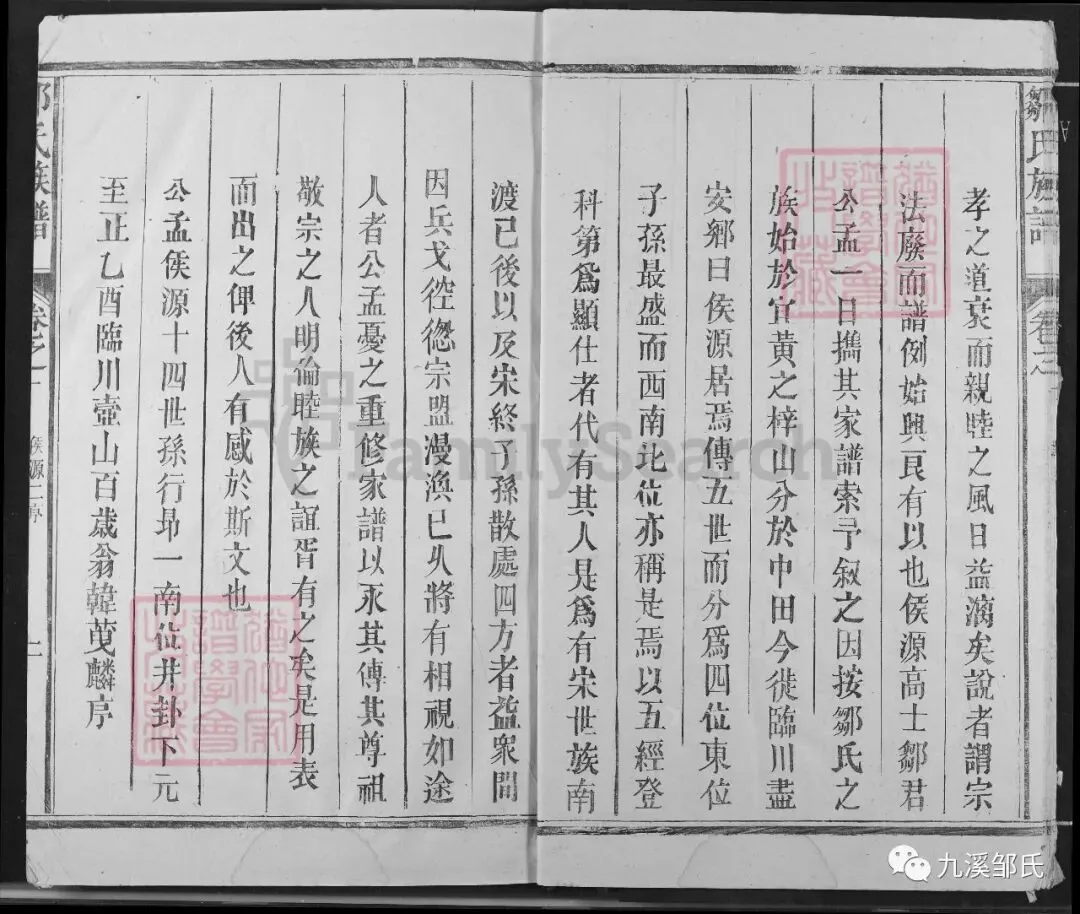 鄒氏族譜 卷之一
孝之道衰而親睦之風日益漓矣說者謂宗
法廢而譜例始興良有以也侯源高士鄒君
公孟一日携其家譜索予叙之因按鄒氏之
族始於宜黃之梓山分於中田今徙臨川盡
安鄉曰侯源居焉傳五世而分為四位東位
子孫最盛而西南北位亦稱是焉以五經登
科第爲顯仕者代有其人是爲有宋世族南
渡已後以及宋終子孫散處四方者益衆間
因兵戈倥傯宗盟漫渙已久將有相視如途
人者公孟憂之重修家譜以永其傳其尊祖
敬宗之人明倫睦族之誼胥有之矣是用表
而出之俾後人有感於斯文也
公孟侯源十四世孫行昂一南位井卦下元
至正乙酉臨川壺山百歲翁韓茰麟序
鄒氏族譜 卷之一 侯源二序
FamilySearch
九溪邹氏